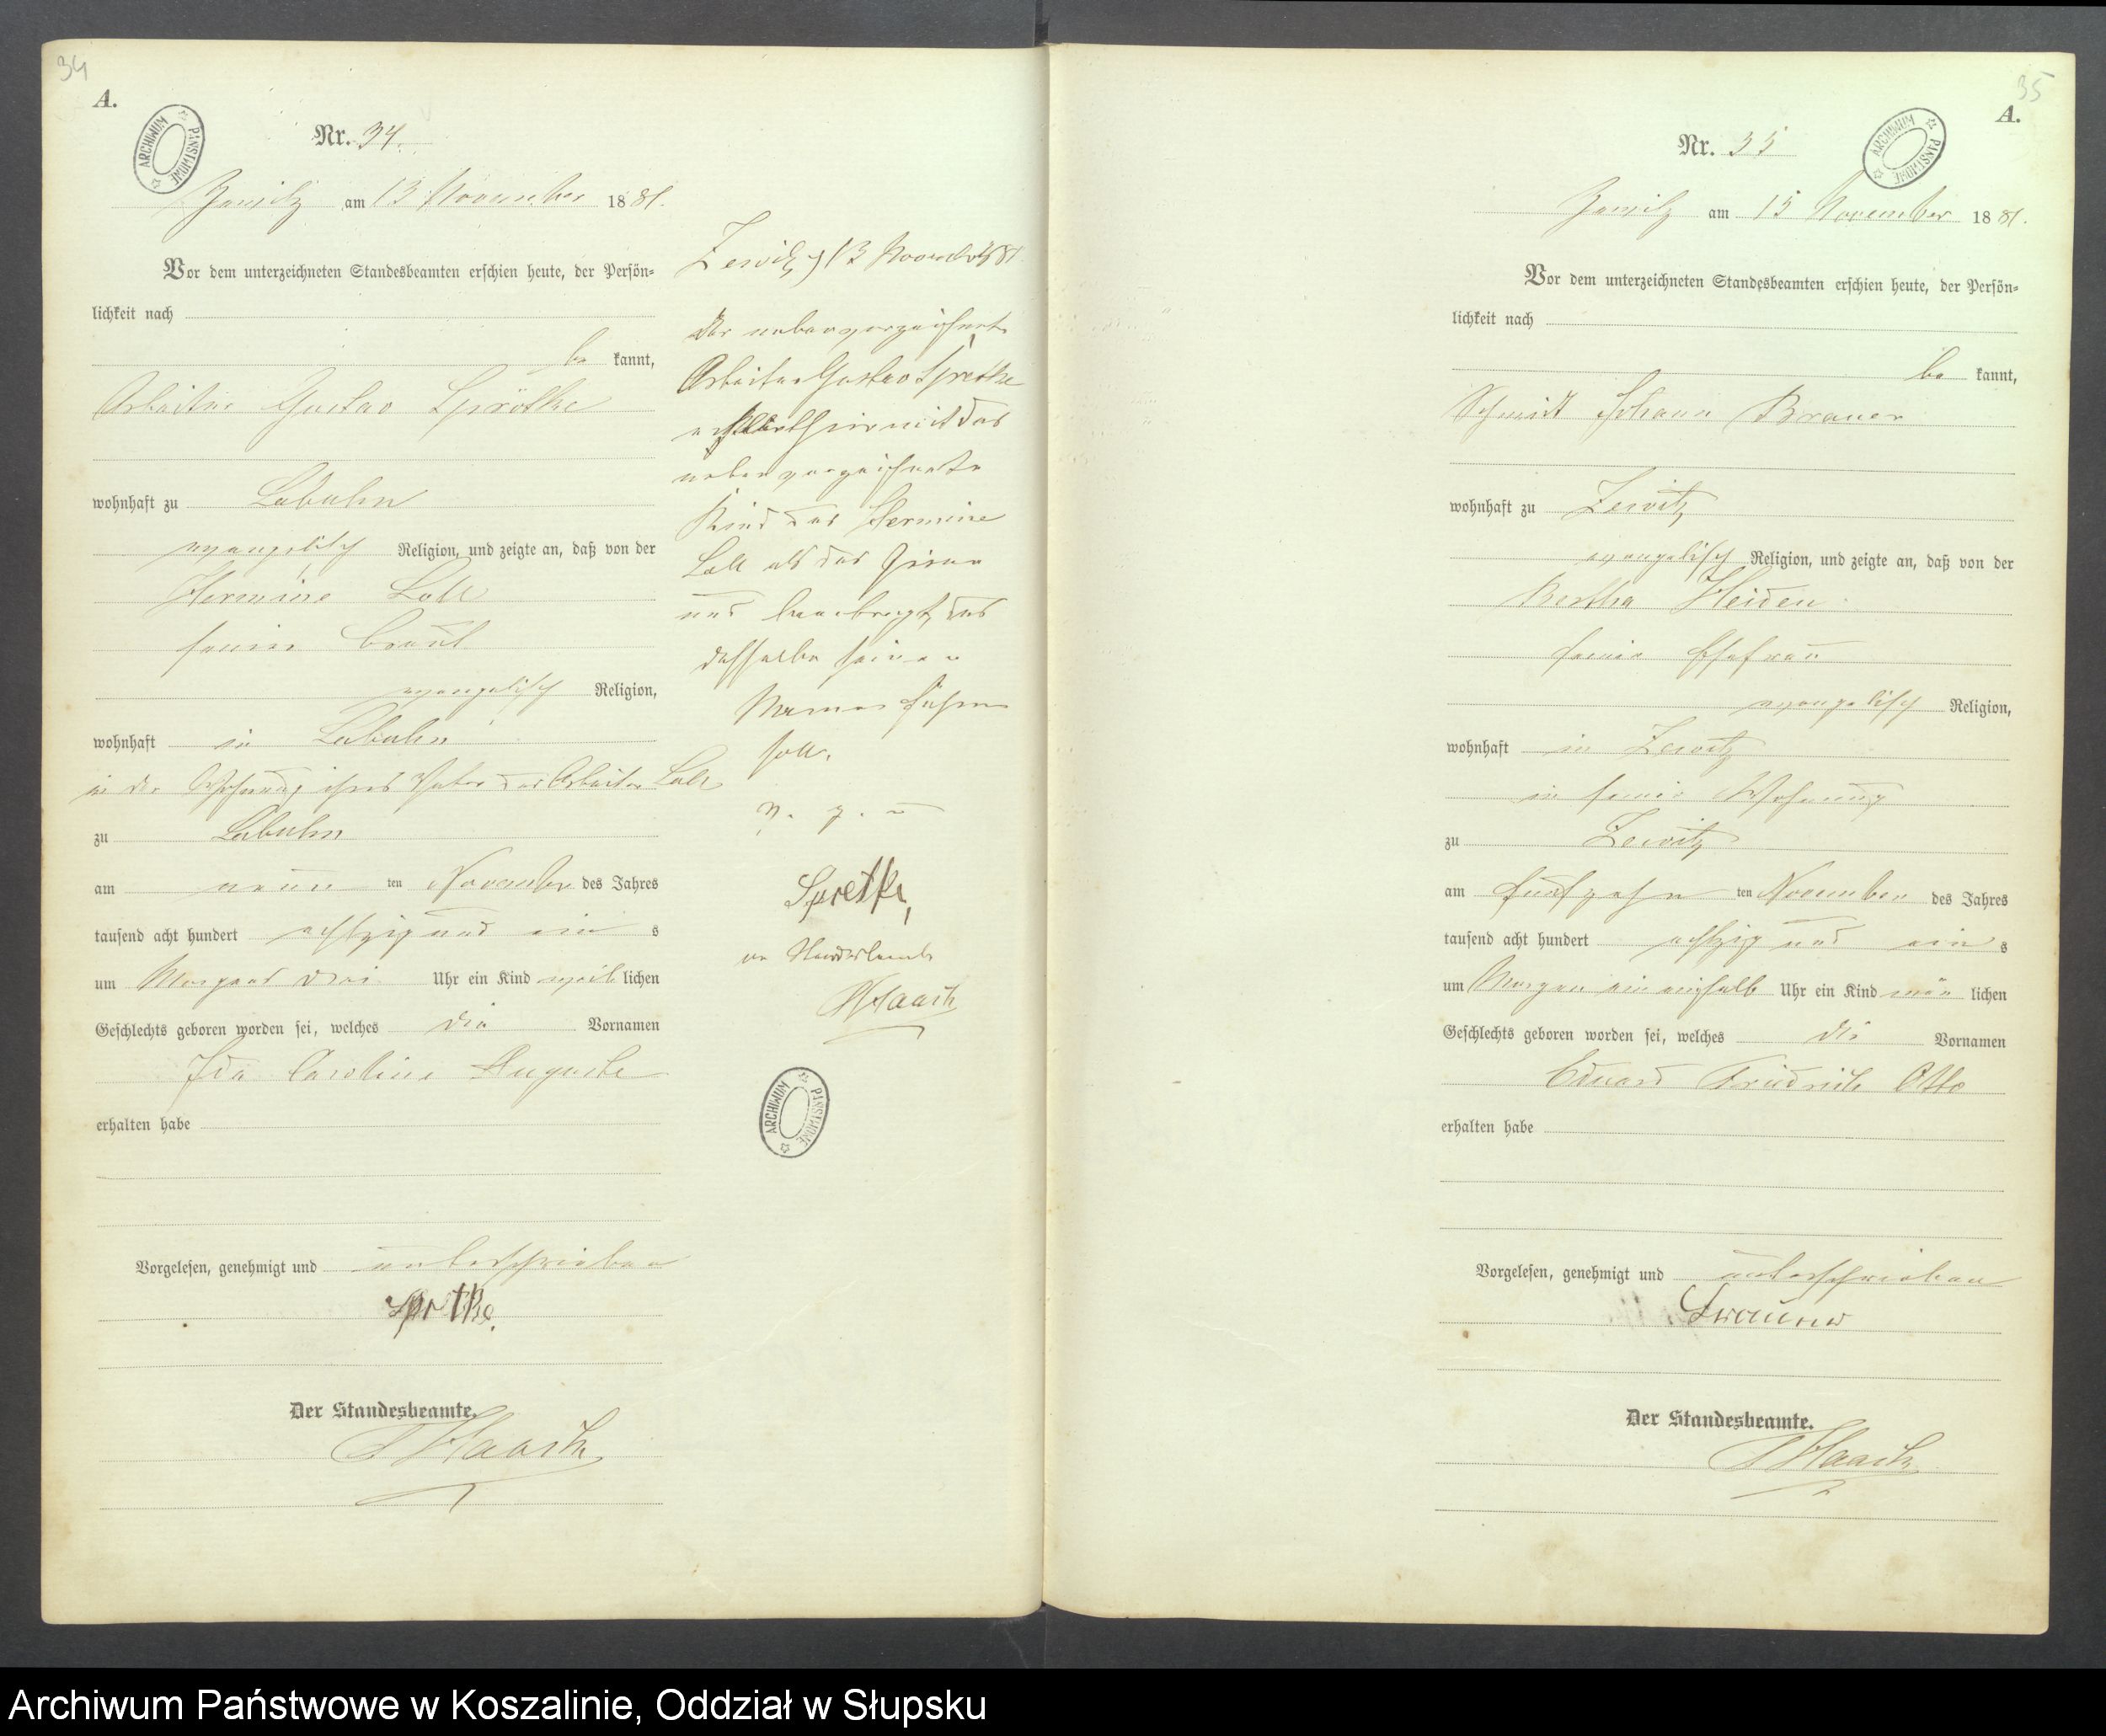 34
A.
ARCHIWUM PAŃSTWOWE
Nr. 34.
am 13 November 1881.
Vor dem unterzeichneten Standesbeamten erschien heute, der Persön-
lichkeit nach
be kannt,
Arbeiter Gustav Sprötke
wohnhaft zu Labuhn
evangelisch Religion, und zeigte an, daß von der
Hermine Loll
seiner Braut
evangelisch Religion,
wohnhaft in Labuhn
in der Wohnung ihres Vaters des Arbeiter Loll
zu Labuhn
am neun ten November des Jahres
tausend acht hundert achtzig und ein s
um Morgens drei Uhr ein Kind weib lichen
Geschlechts geboren worden sei, welches die Vornamen
Ida Caroline Auguste
erhalten habe
Vorgelesen, genehmigt und unterschrieben
Spretke.
Der Standesbeamte.
Haack
Zewitz, 13 November 81.
Der nebenverzeichnete
Arbeiter Gustav Spretke
erklärt hiermit das
nebenverzeichnete
Kind der Hermine
Loll als das Seine
und beantragt, das
dasselbe seinen
Namen führen
soll.
v. g. u
Spretke,
Der Standesbeamte
Haack
ARCHIWUM PAŃSTWOWE
35
A.
ARCHIWUM PAŃSTWOWE
Nr. 35
am 15 November 1881.
Vor dem unterzeichneten Standesbeamten erschien heute, der Persön-
lichkeit nach
be kannt,
Schmidt Johann Brauer
wohnhaft zu Zewitz
evangelisch Religion, und zeigte an, daß von der
Bertha Heiden
seine Ehefrau
evangelisch Religion,
wohnhaft in Zewitz
in seine Wohnung
zu Zewitz
am fünfzehn ten November des Jahres
tausend acht hundert achtzig und ein s
um Morgen ein einhalb Uhr ein Kind män lichen
Geschlechts geboren worden sei, welches die Vornamen
Eduard Friedrich Otto
erhalten habe
Vorgelesen, genehmigt und unterschrieben
Brauer
Der Standesbeamte.
Haack
Archiwum Państwowe w Koszalinie, Oddział w Słupsku